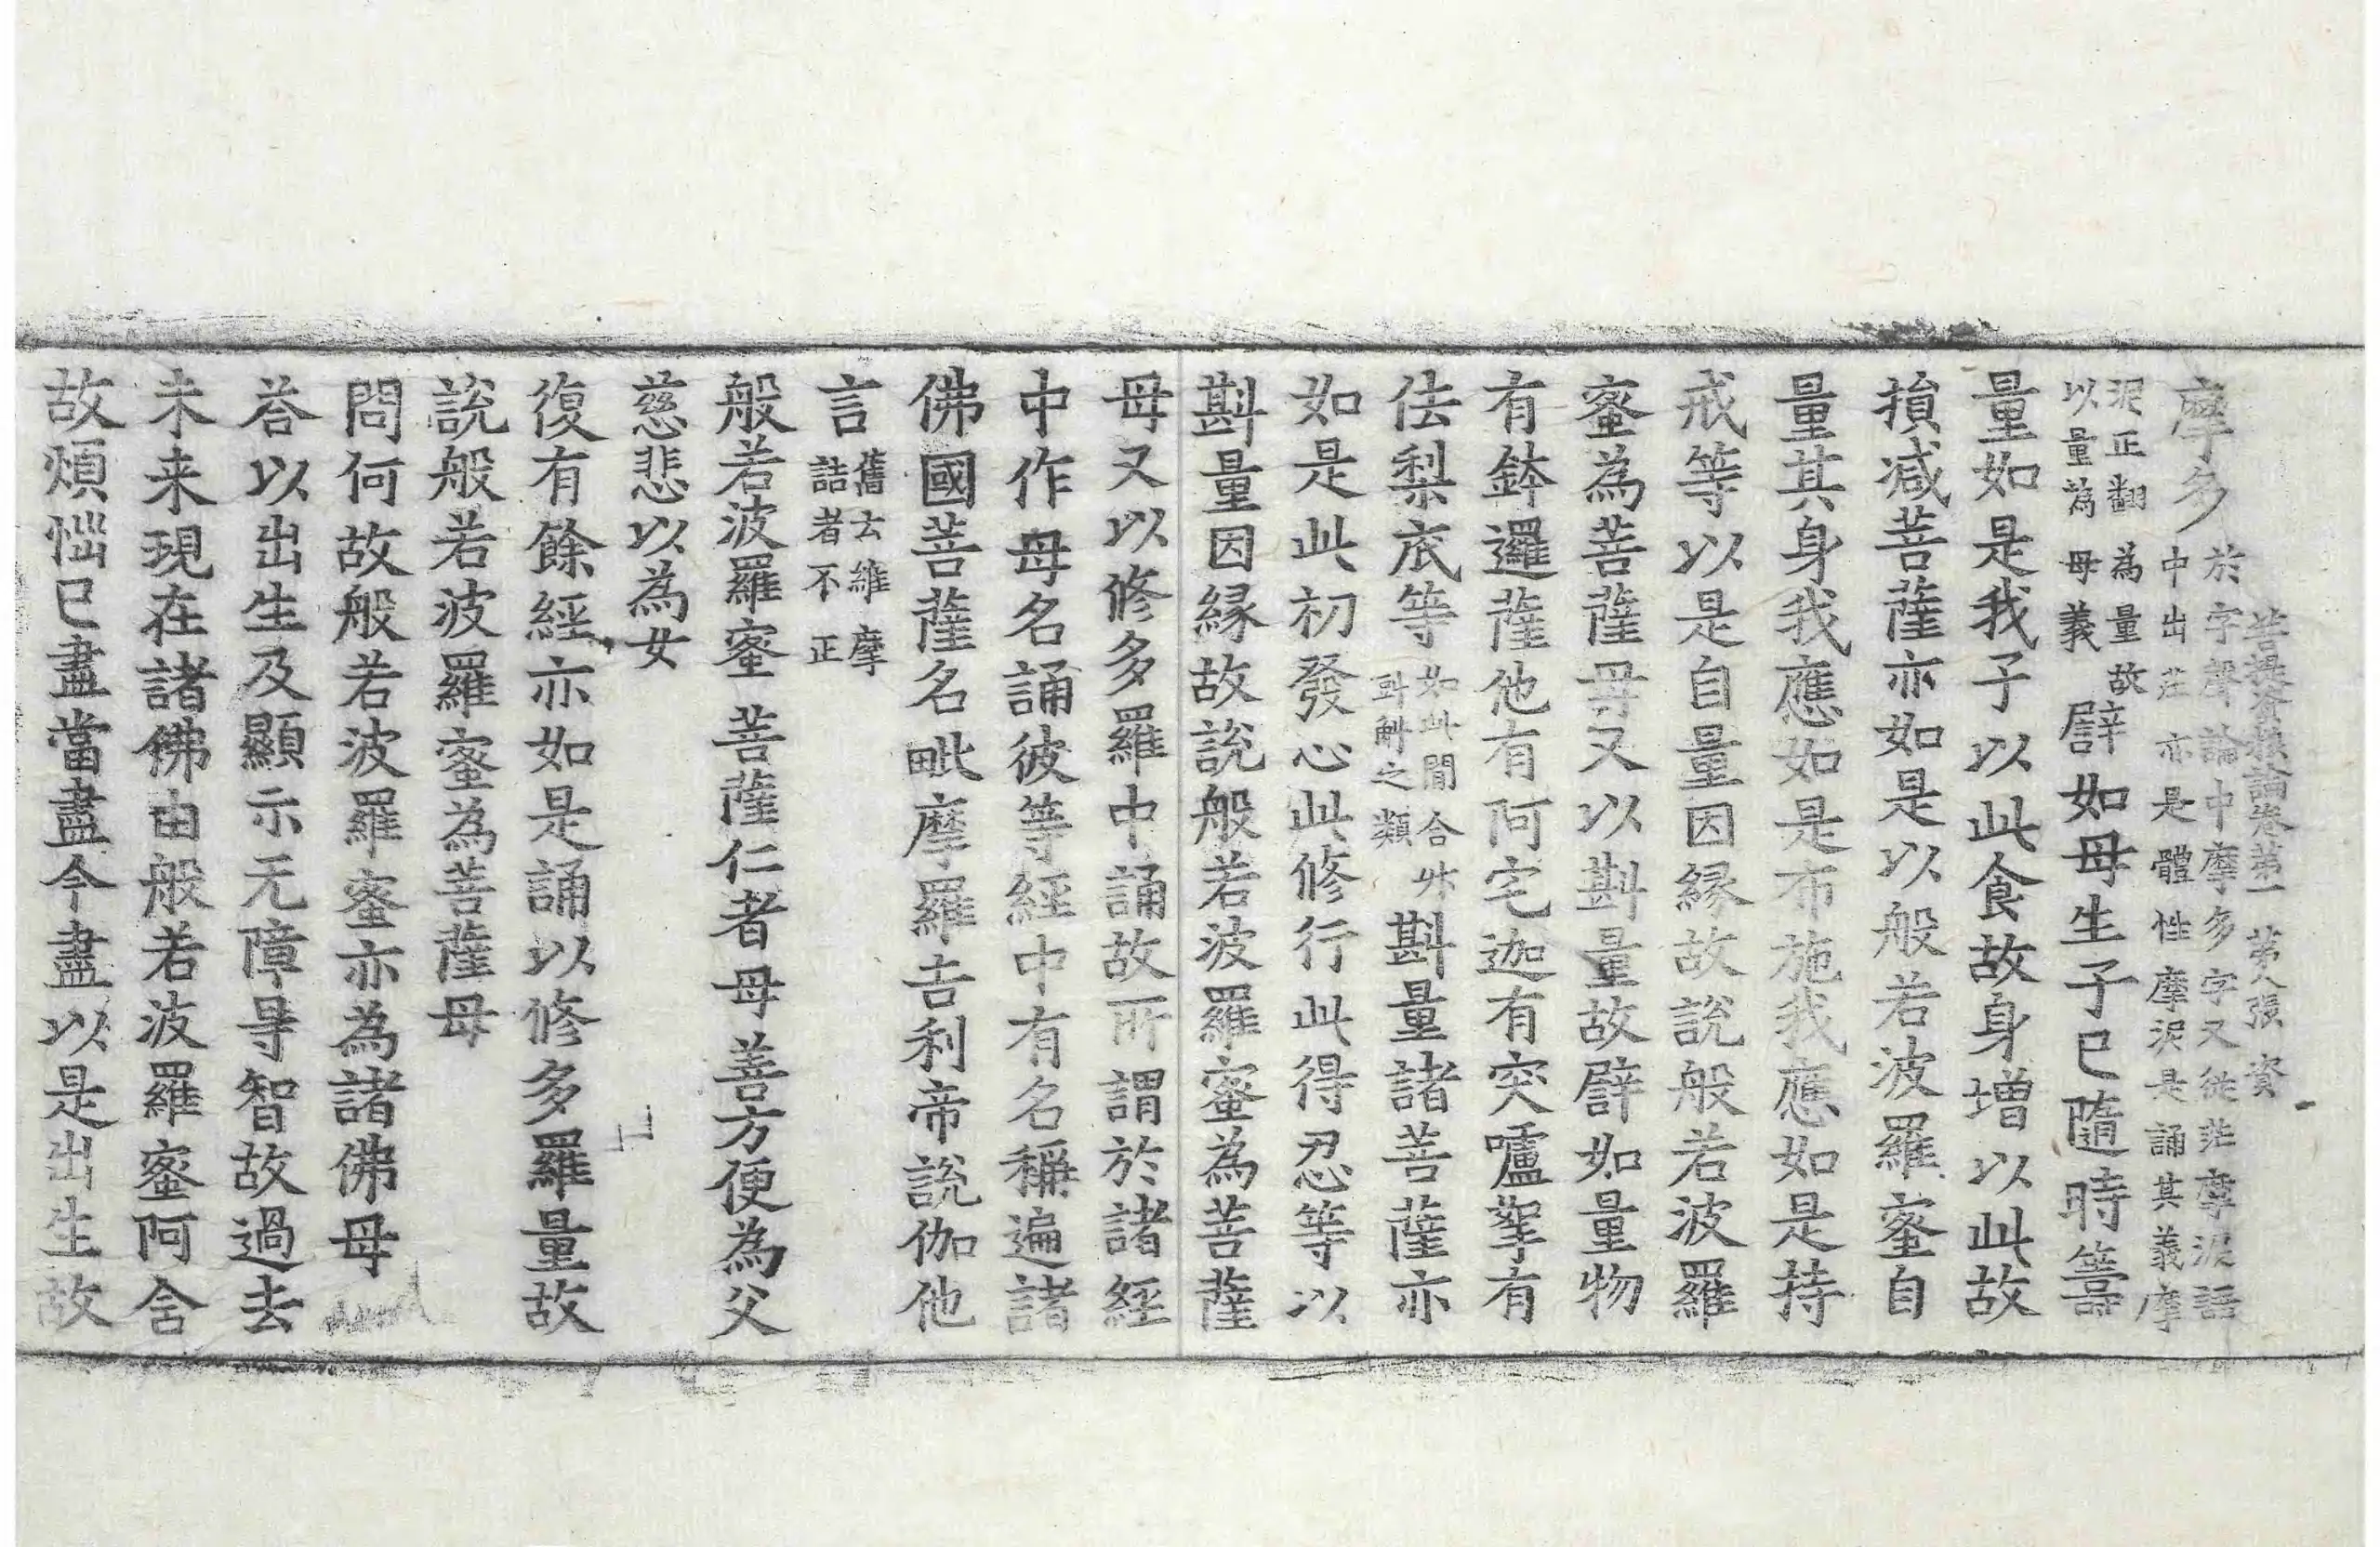 菩提資糧論卷第一　第八張　資
摩多於字聲論中摩多字又從茫摩泥語
中出茫亦是體性摩泥是誦其義摩
泥正翻為量故
以量為母義譬如母生子已隨時籌
量如是我子以此食故身增以此故
損减菩薩亦如是以般若波羅蜜自
量其身我應如是布施我應如是持
戒等以是自量因縁故說般若波羅
蜜為菩薩母又以斟量故譬如量物
有鉢邏薩他有阿宅迦有突嚧拏有
佉梨底等如此間合升
㪷斛之類斟量諸菩薩亦
如是此初發心此修行此得忍等以
斟量因縁故說般若波羅蜜為菩薩
母又以修多羅中誦故所謂於諸經
中作母名誦彼等經中有名稱遍諸
佛國菩薩名毗摩羅吉利帝說伽他
言舊云維摩
詰者不正
般若波羅蜜　菩薩仁者母　善方便為父
慈悲以為女
復有餘經亦如是誦以修多羅量故
說般若波羅蜜為菩薩母
問何故般若波羅蜜亦為諸佛母
荅以出生及顯示无障㝵智故過去
未来現在諸佛由般若波羅蜜阿含
故煩惱已盡當盡今盡以是出生故